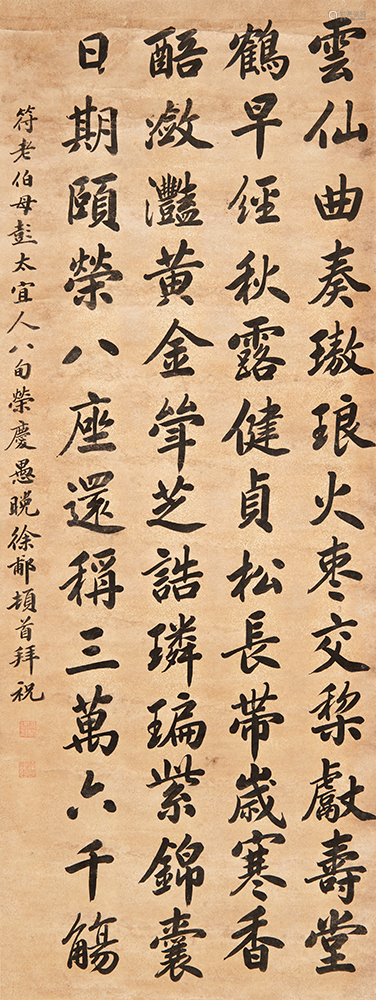 雲仙曲奏璈琅火棗交梨獻壽堂
鶴早經秋露健貞松長帶歲寒香
醅瀲灩黃金斝芝誥璘㻞紫錦囊
日期頤榮八座還稱三萬六千觴
符老伯母彭太宜人八旬榮慶愚晚徐郙頓首拜祝